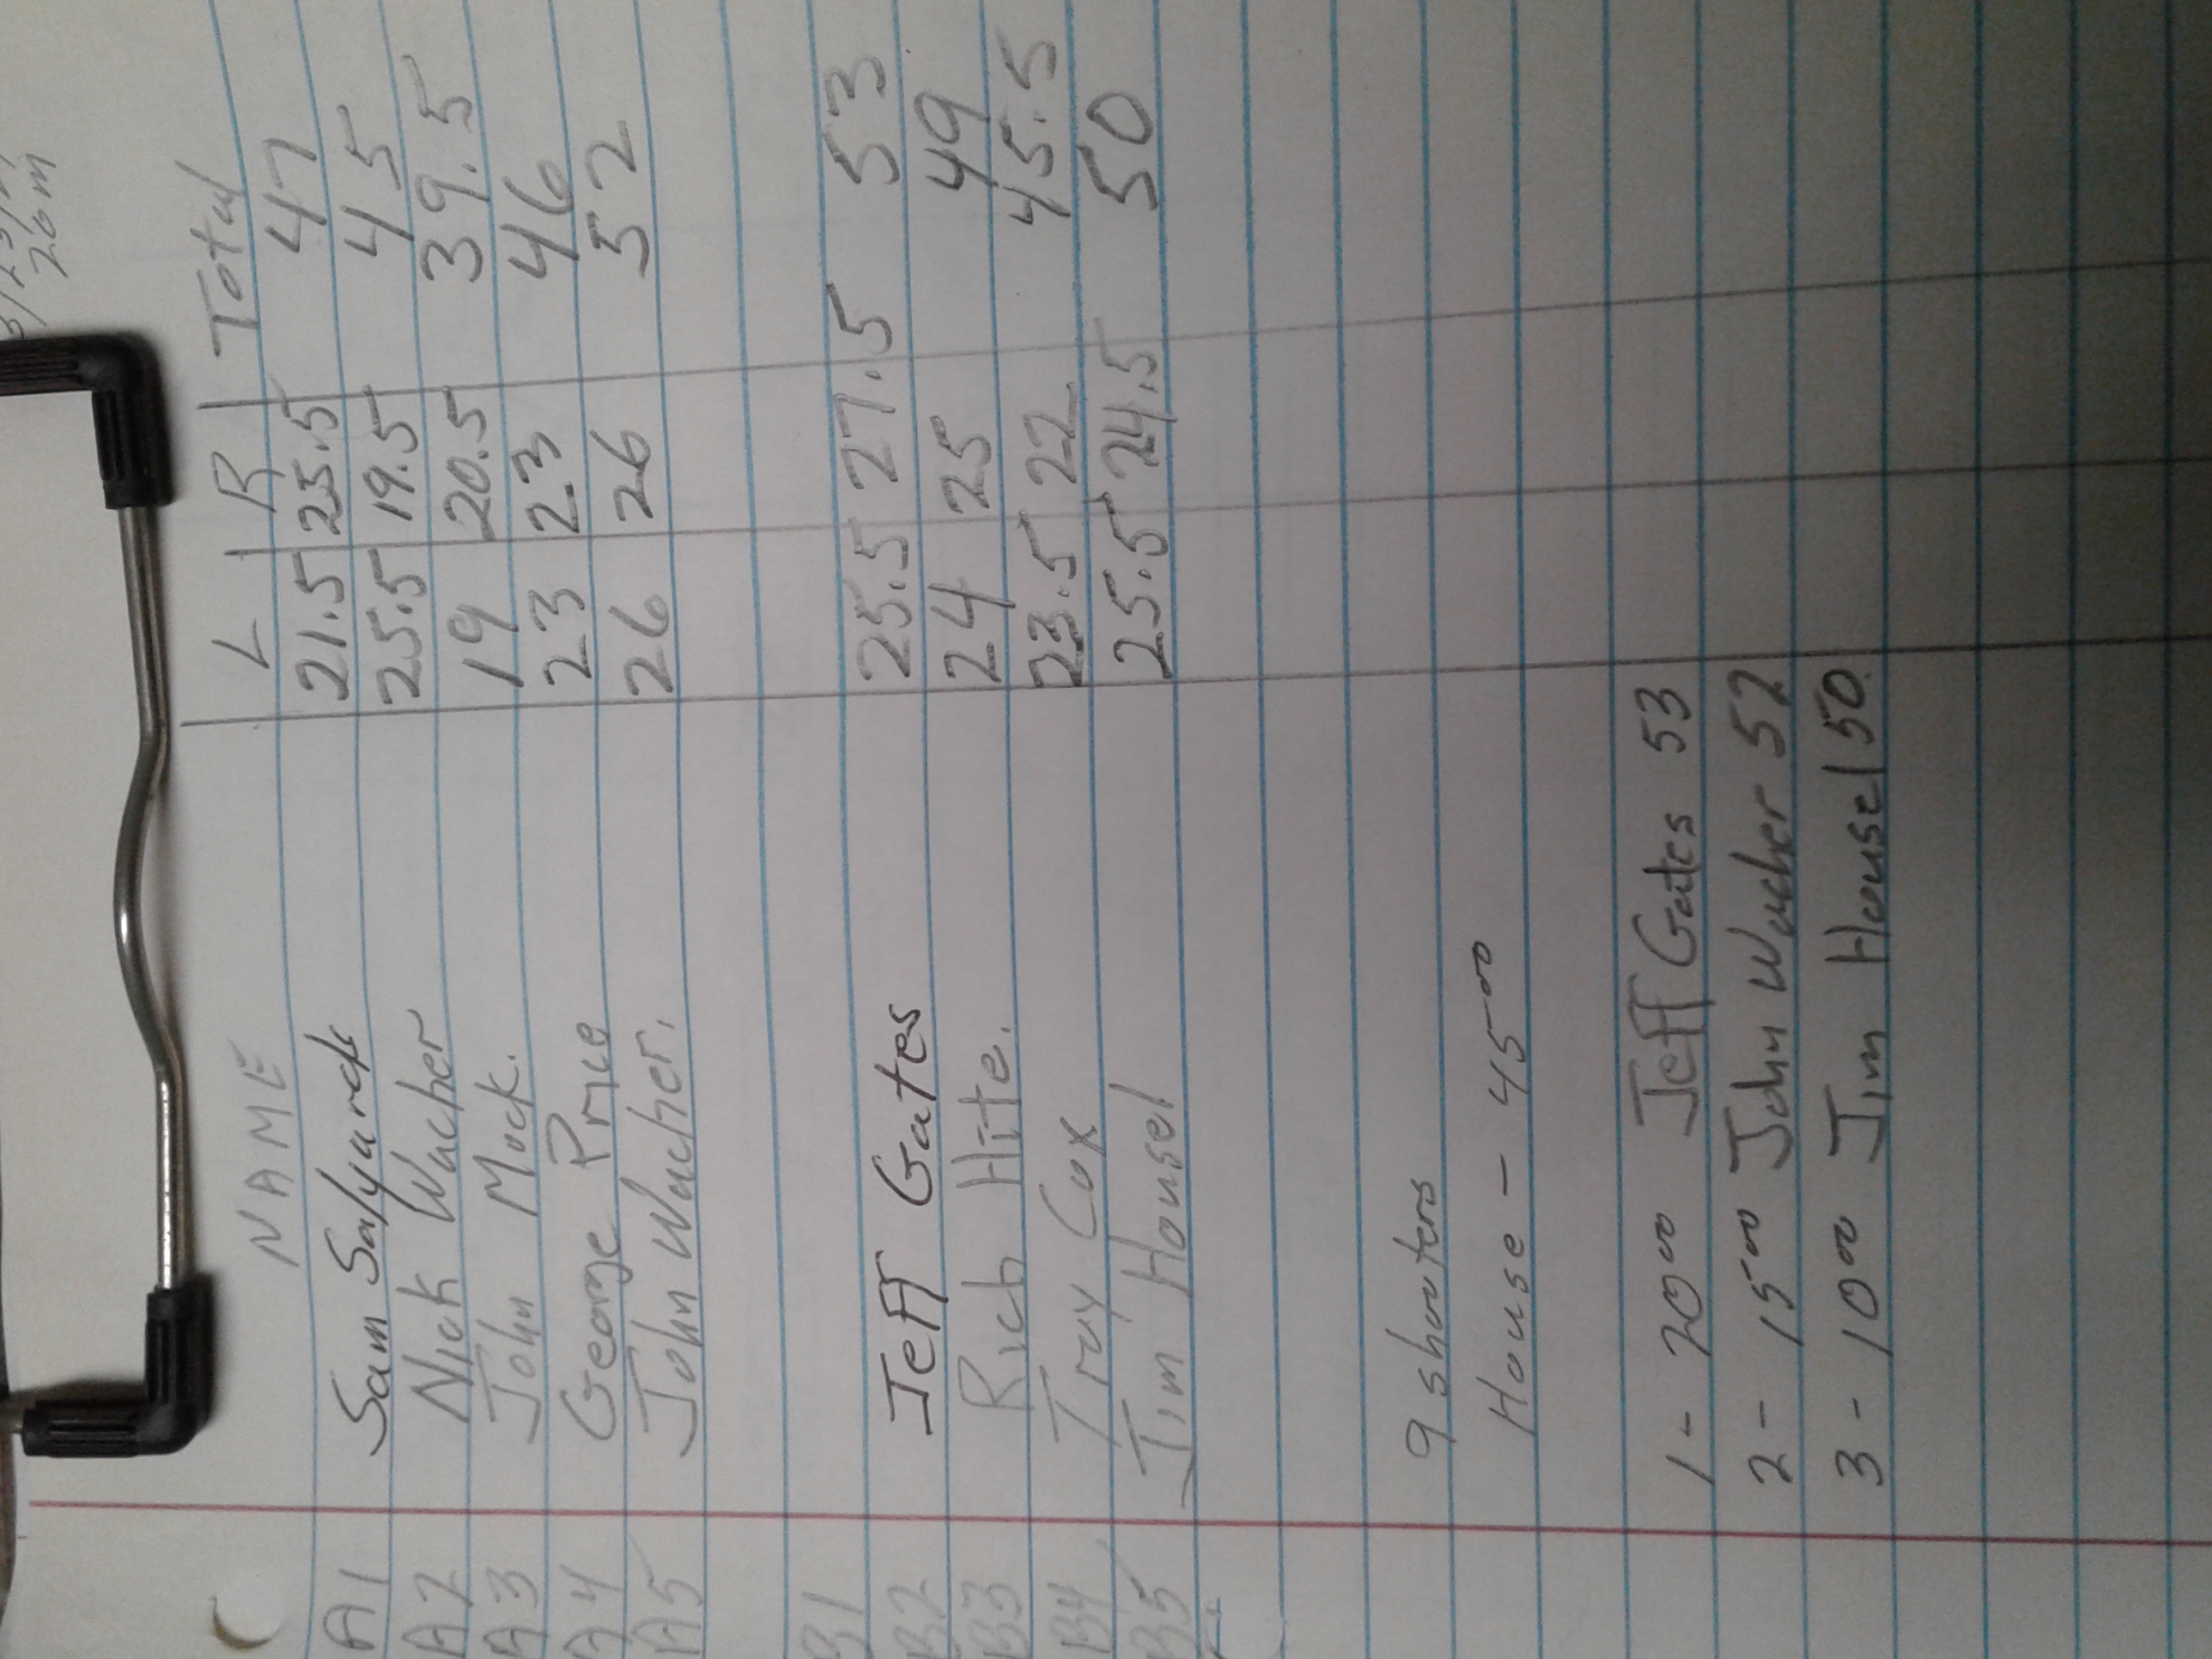 20m
NAME L R Total
A1 Sam Salyards 21.5 25.5 47
A2 Nick Wacher 25.5 19.5 45
A3 John Mock. 19 20.5 39.5
A4 George Price 23 23 46
A5 John Wacher. 26 26 52
B1
B2 Jeff Gates 25.5 27.5 53
B3 Rich Hite. 24 25 49
B4 Troy Cox 23.5 22 45.5
B5 Jim Housel 25.5 24.5 50
9 shooters
House - 45 00
1 - 20 00 Jeff Gates 53
2 - 15 00 John Wacher 52
3 - 10 00 Jim Housel 50